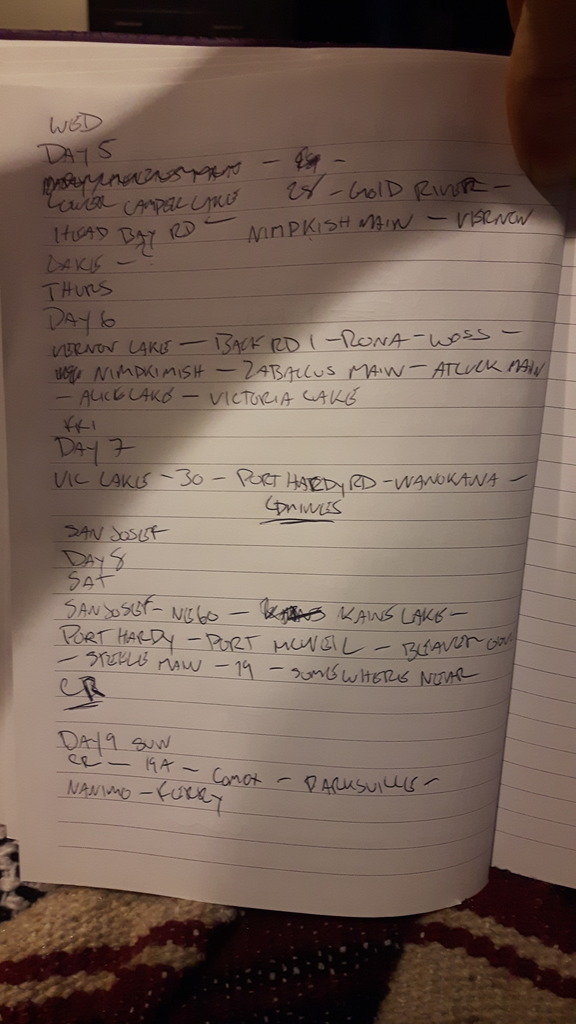 WED
DAY 5
LOWER CAMPER LAKE 28 - GOLD RIVER -
HEAD BAY RD - NIMPKISH MAIN - VERNON
LAKE - ?
THURS
DAY 6
VERNON LAKE - BACK RD 1 - RONA - WOSS -
NIMPKIMISH - ZABALLUS MAIN - ATLUCK MAIN
- ALICE LAKE - VICTORIA LAKE
FRI
DAY 7
VIC LAKE - 30 - PORT HARDY RD - WANOKANA -
SAN JOSEF
DAY 8
SAT
SAN JOSEF - NE60 - KAINS LAKE -
PORT HARDY - PORT MCNEIL - BEAVER COVE
- STEELE MAIN - 19 - SOMEWHERE NEAR
CR
DAY 9 SUN
CR - 19A - COMOX - PARKSVILLE -
NANIMO - FERRY